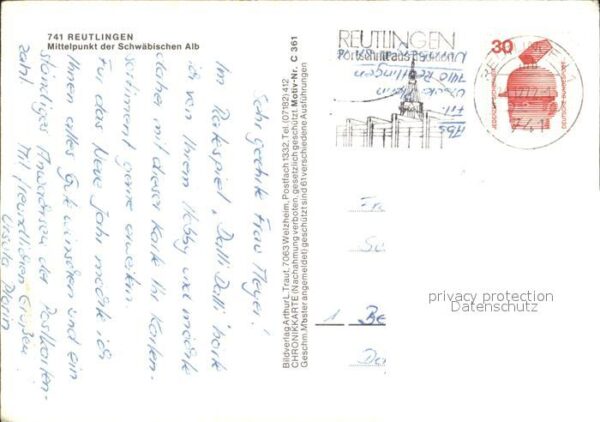 741 REUTLINGEN
Mittelpunkt der Schwäbischen Alb
Sehr geehrte Frau Meyer!
Im Ratespiel „Dalli Dalli" hörte
ich von Ihrem Hobby und möchte
daher mit dieser Karte Ihr Karten-
sortiment gerne erweitern.
Für das Neue Jahr möchte ich
Ihnen alles Gute wünschen und ein
ständiges Anwachsen der Postkarten-
zahl!
Mit freundlichen Grüßen
Ursula
Bildverlag Arthur L. Traut, 7063 Welzheim, Postfach 1332, Tel. (07182) 412
CHRONIKKARTE (Nachahmung verboten, gesetzlich geschützt) Motiv-Nr. C 361
Geschm. Mbster angemeldet) geschützt sind 61 verschiedene Ausführungen
REUTLINGEN
30
JEDERZEIT SICHERHEIT
DEUTSCHE BUNDESPOST
Abs
Frl.
Ursula
7410 Reutlingen
741
Fr
1 Be
privacy protection
Datenschutz